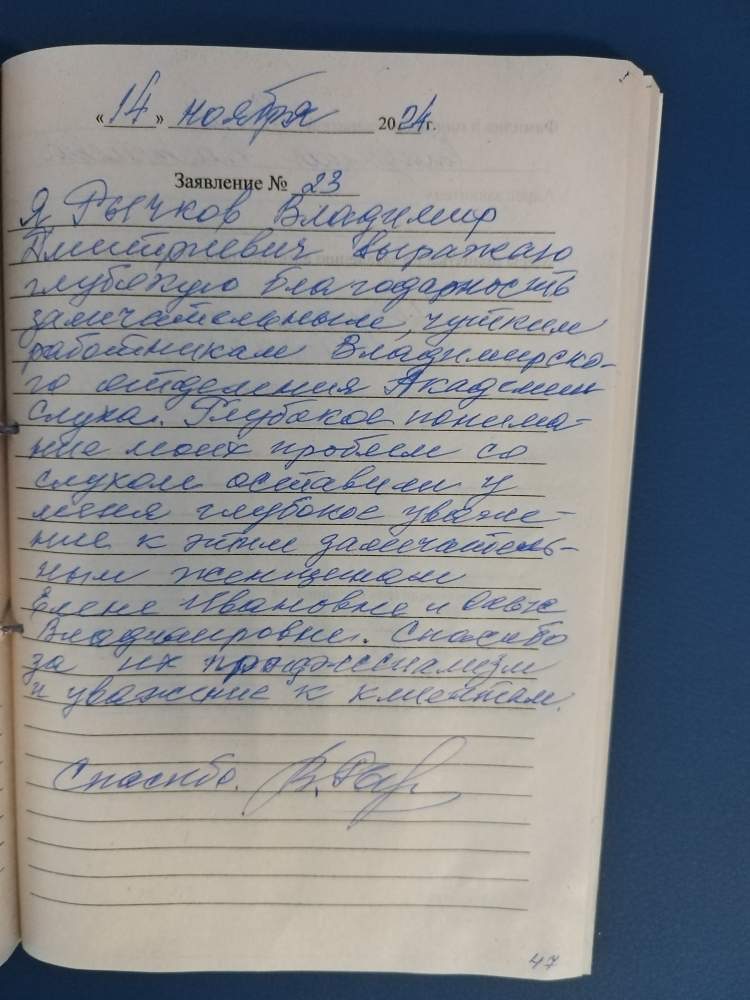 «14» ноября 2024г.
Заявление № 23
Я Рычков Владимир
Дмитриевич выражаю
глубокую благодарность
замечательным, чутким
работникам Владимирско-
го отделения Академии
слуха. Глубокое понима-
ние моих проблем со
слухом оставили у
меня глубокое уваже-
ние к этим замечатель-
ным женщинам
Елене Ивановне и Ольге
Владимировне. Спасибо
за их профессионализм
и уважение к клиентам.
Спасибо.
47